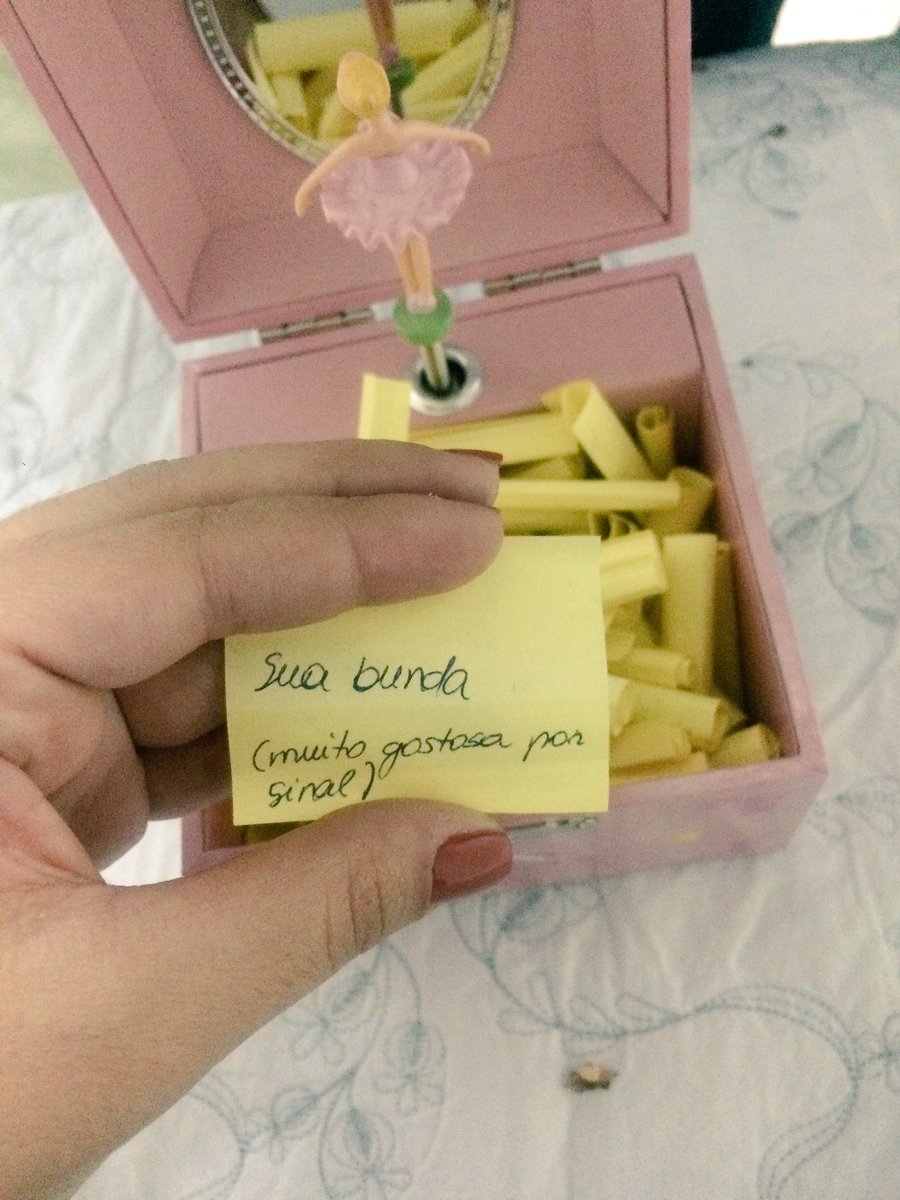 Sua bunda
(muito gostosa por
sinal)